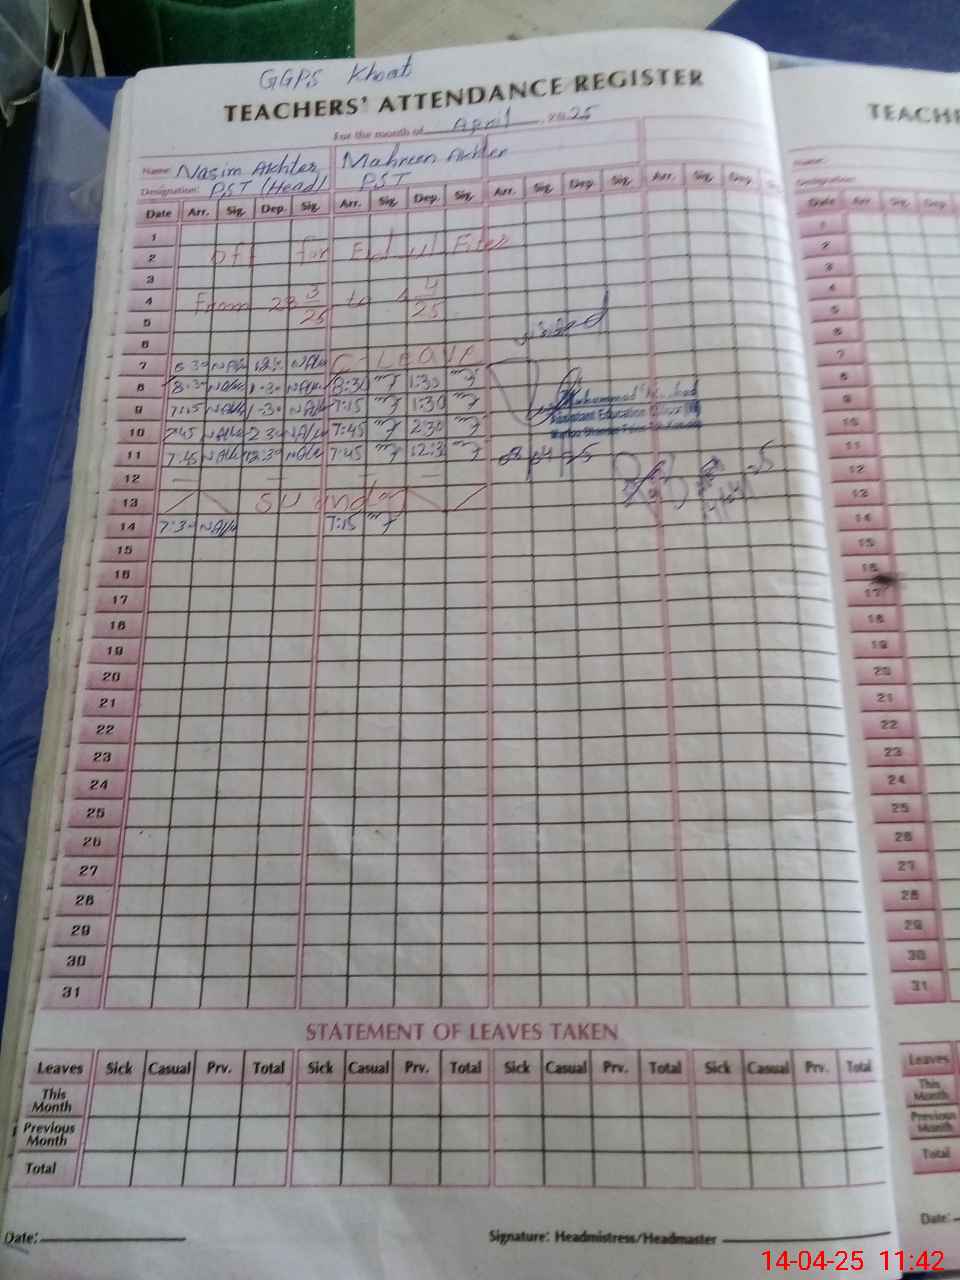 GGPS Khoat
TEACHERS' ATTENDANCE REGISTER
For the month of April 2025
Name: Nasim Akhter Mahreen Akhter
Designation: PST (Head) PST
Date Arr. Sig. Dep. Sig. Arr. Sig. Dep. Sig. Arr. Sig. Dep. Sig. Arr. Sig. Dep. Sig.
1
2 Off for Eid ul Fiter
3
4 From 28 3/25 to 4/25
5
6
7 C-Leave
8 8:30 1:30
9 7:15 1:30 7:15 1:30
10 7:45 7:45 2:30
11 7:45 12:30 7:45 12:3
12 — — — —
13 Sunday
14 7:30 7:15
15
16
17
18
19
20
21
22
23
24
25
26
27
28
29
30
31
visited
Muhammad
Assistant Education Officer
STATEMENT OF LEAVES TAKEN
Leaves Sick Casual Prv. Total Sick Casual Prv. Total Sick Casual Prv. Total Sick Casual Prv. Total
This Month
Previous Month
Total
Date: Signature: Headmistress/Headmaster
TEACHE
Name:
Designation:
Date Arr. Sig. Dep.
1
2
3
4
5
6
7
8
9
10
11
12
13
14
15
16
17
18
19
20
21
22
23
24
25
26
27
28
29
30
31
Leaves
This Month
Previous Month
Total
Date:
14-04-25 11:42